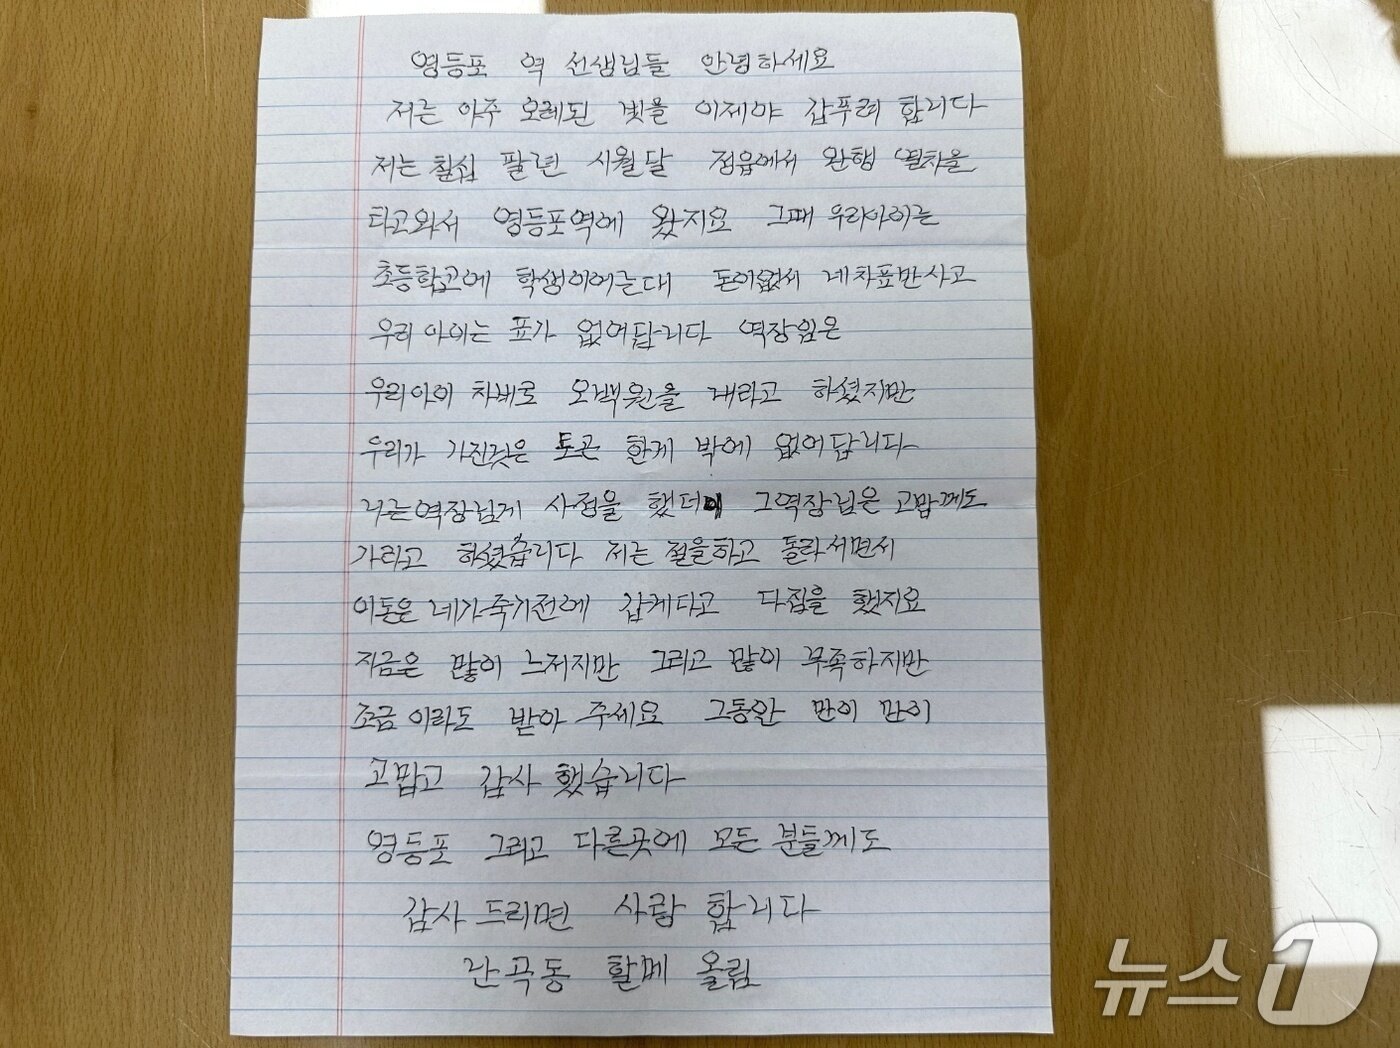 영등포 역 선생님들 안녕하세요
저는 아주 오레된 빛을 이제야 갑푸려 합니다
저는 칠십 팔년 시월달 정읍에서 완행 열차을
타고와서 영등포역에 왔지요 그때 우리아이는
초등학교에 학생이어는대 돈이없서 네차표만사고
우리 아이는 표가 없어답니다 역장임은
우리아이 차비로 오백원을 내라고 하셨지만
우리가 가진것은 토큰 한게 밖에 없어답니다
나는역장님게 사정을 했더니 그역장님은 고맙께도
가라고 하셨습니다 저는 절을하고 돌라서면서
이돈은 네가죽기전에 갑게다고 다짐을 했지요
지금은 많이 느저지만 그리고 많이 부족하지만
조금 이라도 받아 주세요 그동안 만이 만이
고맙고 감사 했습니다
영등포 그리고 다른곳에 모든 분들께도
감사 드리면 사람 합니다
난곡동 할메 올림
뉴스1